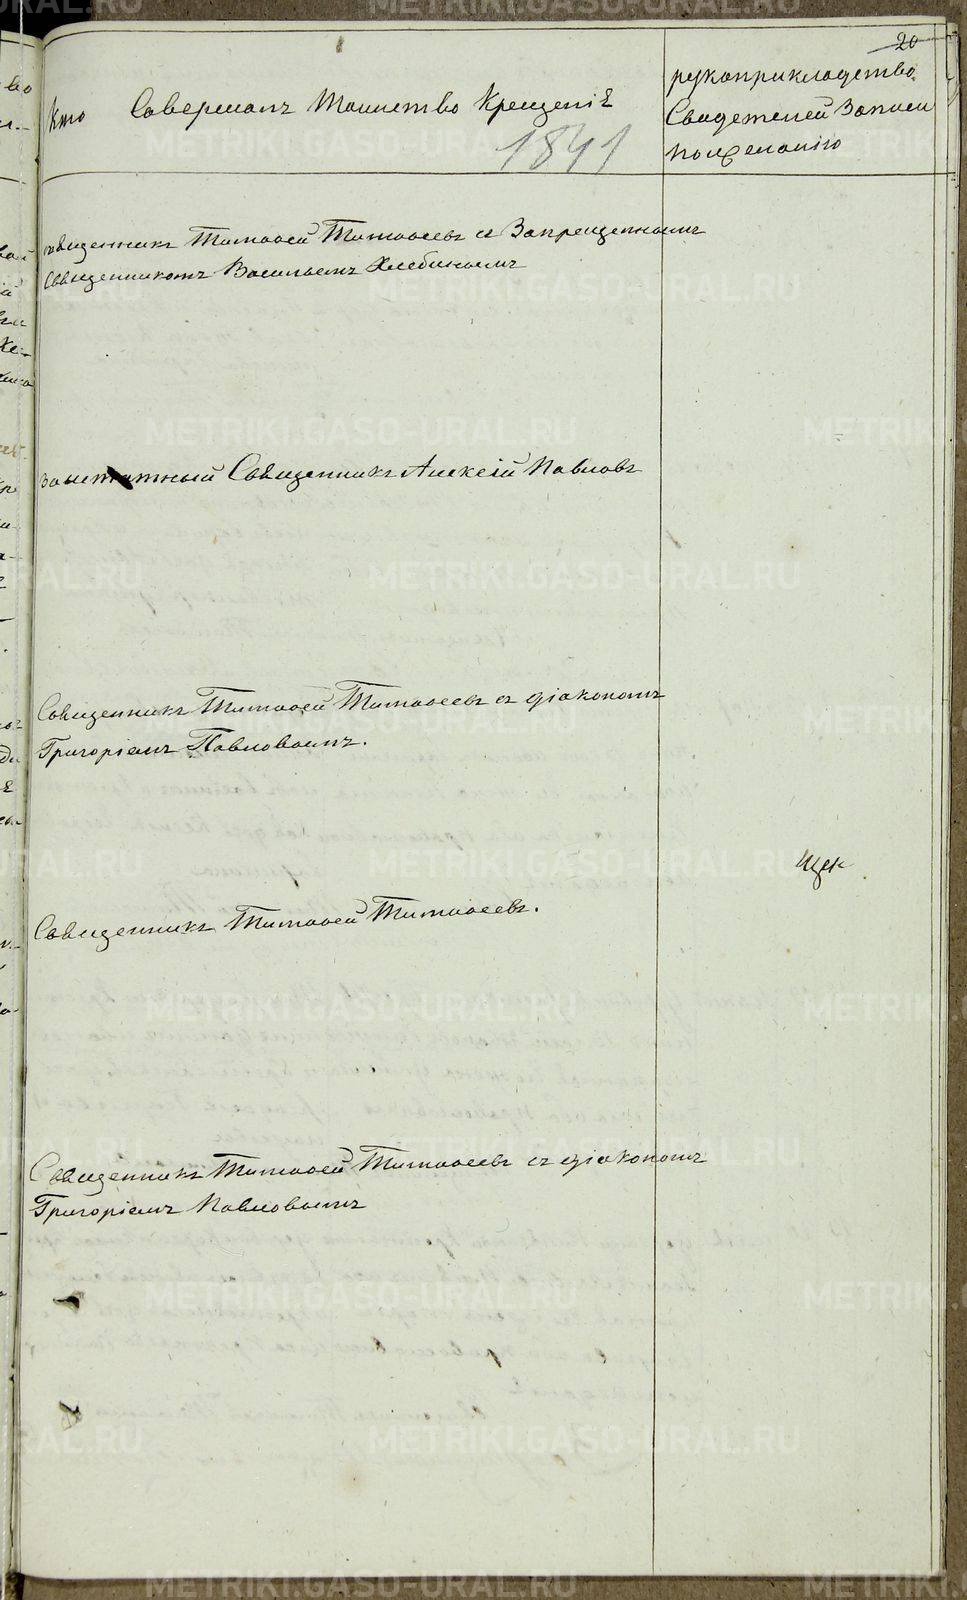 20
Кто Совершалъ Таинство Крещенiѣ
1841
рукоприкладство
Свидетелей Записи
по желанiю
священникъ Тимоѳей Тимоѳеевъ съ Запрещеннымъ
Священникомъ Васильемъ Хлебинымъ
Заштатный Священникъ Алексiй Павловъ
Священникъ Тимоѳей Тимоѳеевъ съ дiакономъ
Григорiемъ Павловымъ.
Священникъ Тимоѳей Тимоѳеевъ.
Священникъ Тимоѳей Тимоѳеевъ съ дiакономъ
Григорiемъ Павловымъ
METRIKI.GASO-URAL.RU